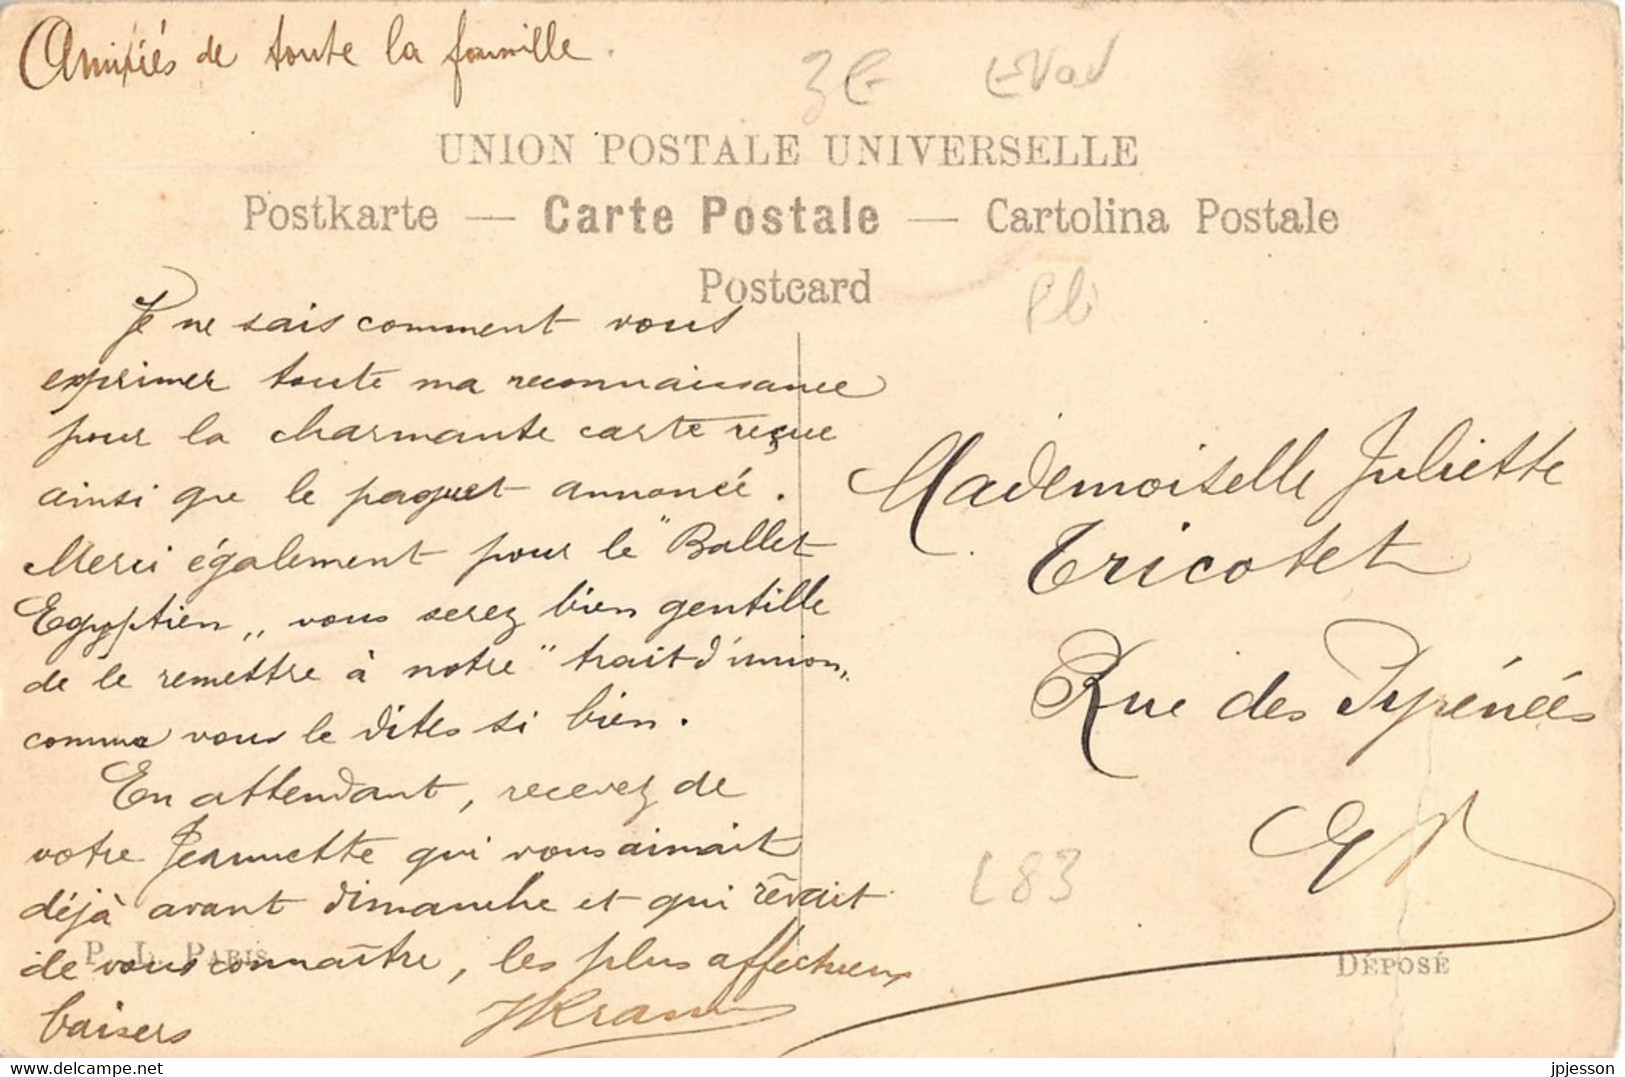 Amitiés de toute la famille.
3€
UNION POSTALE UNIVERSELLE
Postkarte — Carte Postale — Cartolina Postale
Postcard
Je ne sais comment vous
exprimer toute ma reconnaissance
pour la charmante carte reçue
ainsi que le paquet annoncé.
Merci également pour le "Ballet
Egyptien„ vous serez bien gentille
de le remettre à notre "trait d'union„
comme vous le dites si bien.
En attendant, recevez de
votre Jeannette qui vous aimait
déjà avant dimanche et qui rêvait
de vous connaître, les plus affectueux
baisers
Mademoiselle Juliette
Tricotet
Rue des Pyrénées
L83
P. L. PARIS
DÉPOSÉ
jpjesson